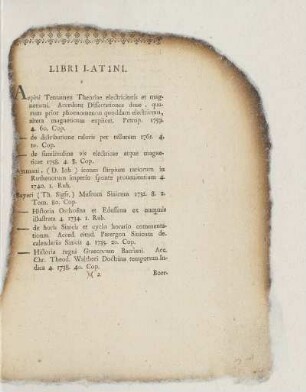 LIBRI LATINI.
Aepini Tentamen Theoriae electricitatis et mag-
netismi. Accedunt Dissertationes duae, qua-
rum prior phoenomenon quoddam electricum,
altera magneticum explicat. Petrop. 1759.
4. 60. Cop.
— de distributione caloris per tellurem 1761. 4.
10. Cop.
— de similitudine vis electricae atque magne-
ticae 1758. 4. 8. Cop.
Ammani. (D. Joh) icones stirpium rariorum in
Ruthenorum imperio sponte provenientium 4.
1740. 1. Rub.
Bayeri (Th. Sigfr.) Musaeum Sinicum 1732. 8. 2.
Tom. 80. Cop.
— Historia Orrhoëna et Edessena ex nummis
illustrata 4. 1734. 1. Rub.
— de horis Sinicis et cyclo horario commenta-
tiones. Acced. eiusd. Parergon Sinicum de
calendariis Sinicis 4. 1735. 20. Cop.
— Historia regni Graecorum Bactriani. Acc.
Chr. Theod. Waltheri Doctrina temporum In-
dica 4. 1738. 40. Cop.
)( 2. Boer-